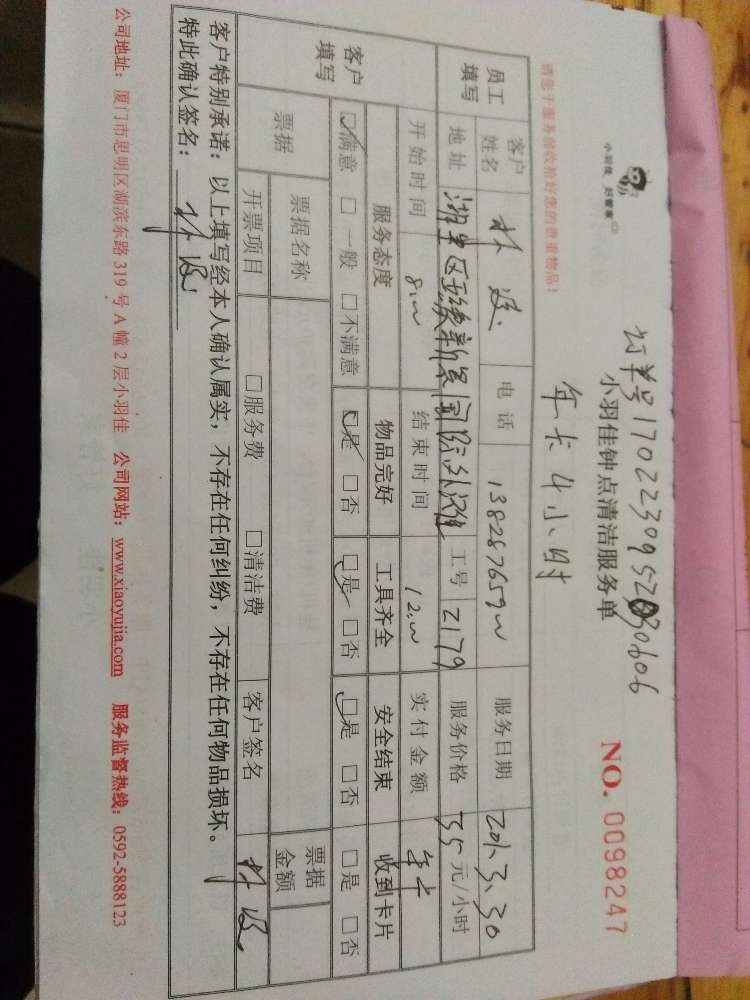 订单号170223095230606
小羽佳 好管家
小羽佳钟点清洁服务单
NO. 0098247
请您于服务前收拾好您的贵重物品!
年卡4小时
员工填写 客户姓名 林 电话 服务日期 3.30
地址 湖里区 新景国际外滩 工号 2179 服务价格 35 元/小时
开始时间 8:00 结束时间 12:00 实付金额 年卡
客户填写 服务态度 物品完好 工具齐全 安全结束 收到卡片
☑满意 □一般 □不满意 ☑是 □否 ☑是 □否 ☑是 □否 □是 □否
票据 票据名称 票据金额
开票项目 □服务费 □清洁费 客户签名 林
客户特别承诺：以上填写经本人确认属实，不存在任何纠纷，不存在任何物品损坏。
特此确认签名：林
公司地址：厦门市思明区湖滨东路319号A幢2层小羽佳 公司网站：www.xiaoyujia.com 服务监督热线：0592-5888123